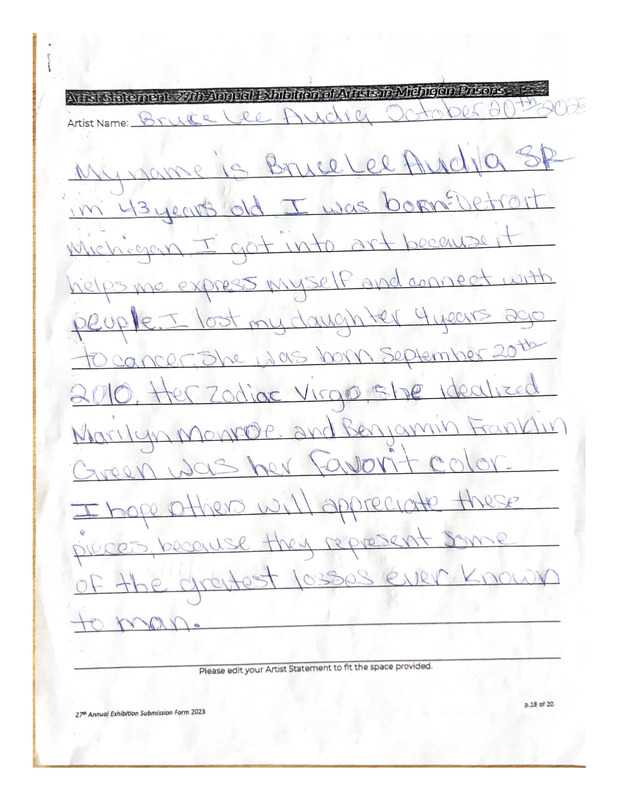 Artist Statement 27th Annual Exhibition of Artists in Michigan Prisons
Artist Name: Bruce Lee Audia October 20th 2023
My name is Bruce Lee Audia SR
im 43 years old I was born Detroit
Michigan I got into art because it
helps me express myself and connect with
people. I lost my daughter 4 years ago
to cancer. she was born September 20th
2010. Her Zodiac Virgo. she idealized
Marilyn Monroe. and Benjamin Franklin
Green was her favorit color.
I hope others will appreciate these
pieces because they represent some
of the gratest losses ever known
to man.
Please edit your Artist Statement to fit the space provided.
27th Annual Exhibition Submission Form 2023
p.18 of 20